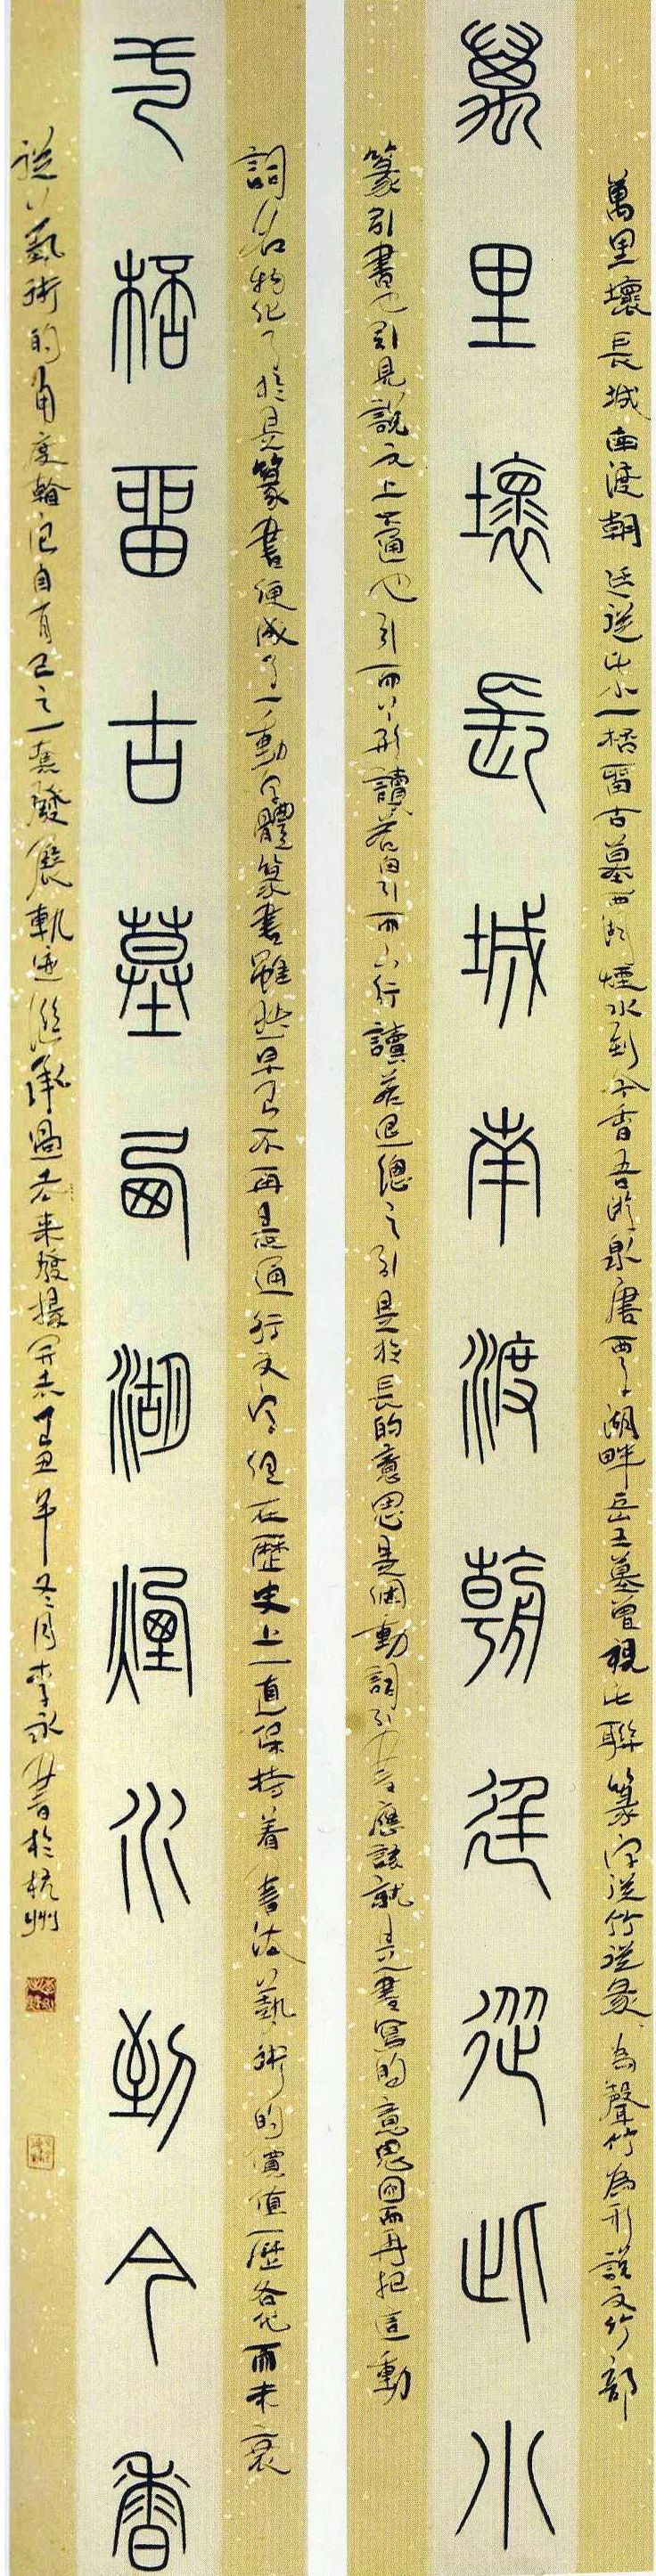 萬里壞長城南渡朝廷從此小一抔留古墓西湖煙水到今香吾游泉唐西子湖畔岳王墓曾視此聯篆字從竹從彖彖為聲竹為形說文竹部
萬里壞長城南渡朝廷從此小
篆引書也引見說文上下通也引而上行讀若囟引而下行讀若退總之引是於長的意思是個動詞引書應該就是書寫的意思因而再把這動
詞名物化了於是篆書便成了一動字體篆書雖然早已不再是通行文字但在歷史上一直保持着書法藝術的價值歷各代而未衰
一抔留古墓西湖煙水到今香
從藝術的角度論它自有己之一套發展軌跡繼承過去來發揚開去己丑年冬月李永書於杭州